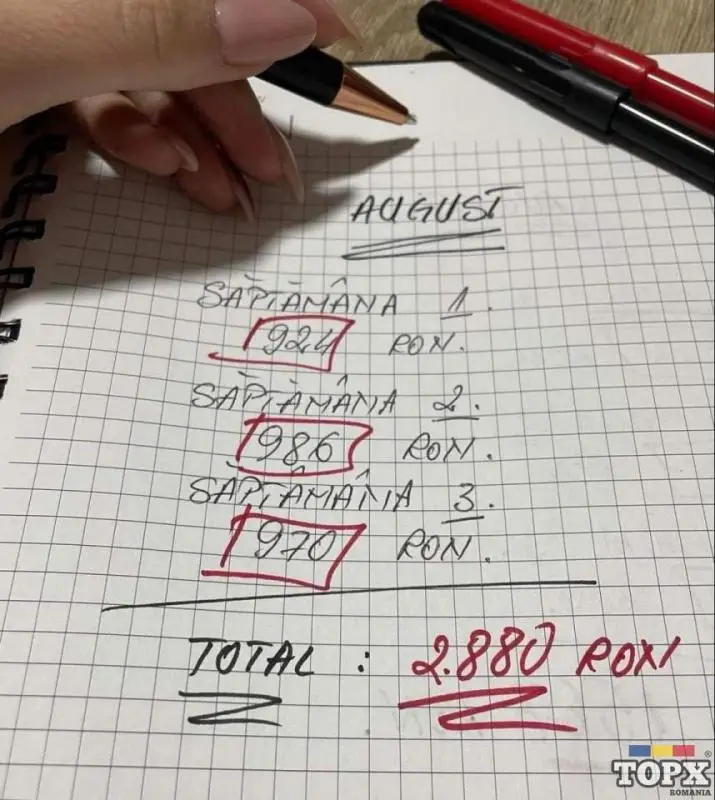 AUGUST
SĂPTĂMÂNA 1.
924 RON.
SĂPTĂMÂNA 2.
986 RON.
SĂPTĂMÂNA 3.
970 RON.
TOTAL : 2.880 RON
TOPX
ROMANIA